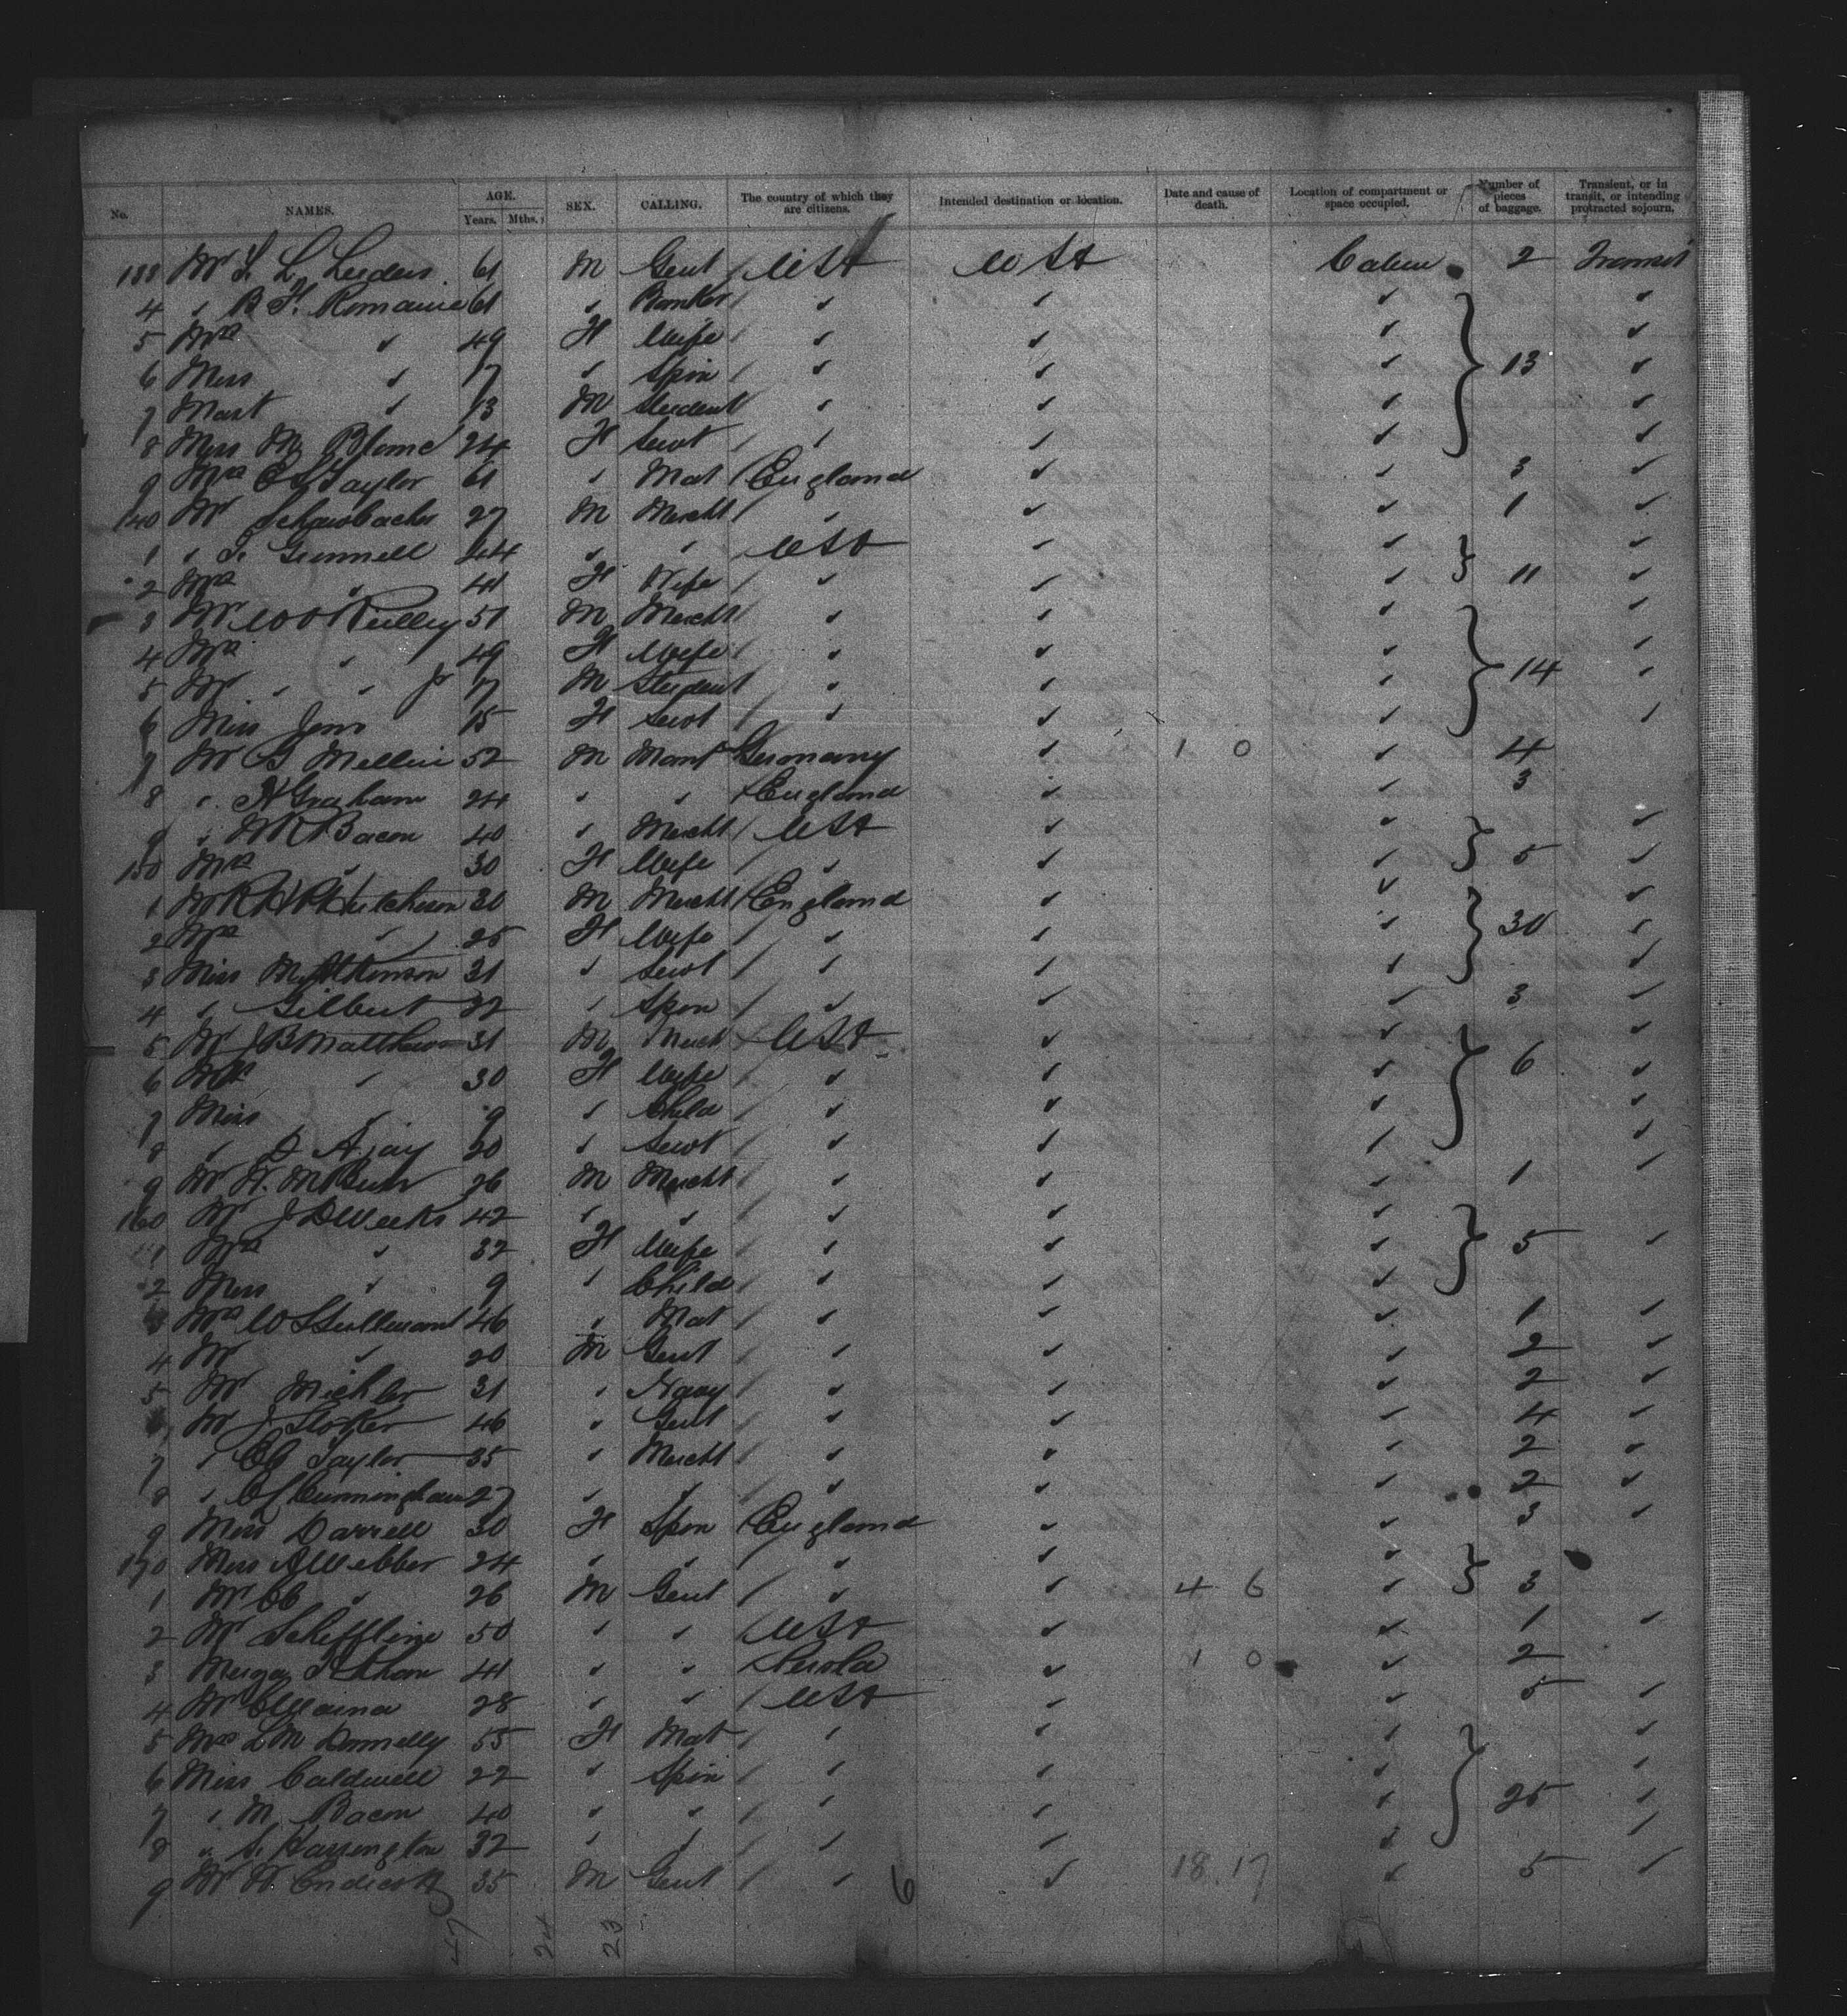 No. NAMES. AGE. Years. Mths. SEX. CALLING. The country of which they are citizens. Intended destination or location. Date and cause of death. Location of compartment or space occupied. Number of pieces of baggage. Transient, or in transit, or intending protracted sojourn.
133 Mr L. Leeders 61 M Gent USA USA Cabin 2 Transit
4 " B F. Romaine 61 " Banker " " " "
5 Mrs " 49 F Wife " " " "
6 Miss " 17 " Spin " " " 13 "
7 Mast " 13 M Student " " " "
8 Miss M. Blome 24 F Servt " " " "
9 Mrs E S Taylor 61 " Mat England " " 3 "
140 Mr Schawbacher 27 M Mercht " " " 1 "
1 " Grinnell 44 " " USA " " "
2 Mrs " 41 F Wife " " " 11 "
3 Mr W O Reilly 51 M Mercht " " " "
4 Mrs " 49 F Wife " " " 14 "
5 Mr " " Jr 17 M Student " " " "
6 Miss Jens 15 F Servt " " " "
7 Mr G Mellin 52 M Mant Germany " 1 0 " 4
8 " Graham 24 " " England " " 3
9 " W R Bacon 40 " Mercht USA " " "
150 Mrs " 30 F Wife " " " 5 "
1 Mr R H P Hutcheson 30 M Mercht England " " "
2 Mrs " 25 F Wife " " " 30 "
3 Miss M Atkinson 31 " Servt " " " "
4 " Gilbert 32 " Spin " " " 3 "
5 Mr J B Matthews 31 M Merch USA " " "
6 Mrs " 30 F Wife " " " 6 "
7 Miss " 9 " Child " " " "
8 " D A Jay 20 " Servt " " " "
9 Mr H. M Burr 26 M Mercht " " " 1 "
160 Mr J D Weeks 42 " " " " "
1 Mrs " 32 F Wife " " " 5 "
2 Miss " 9 " Child " " "
3 Mrs W Stullman 46 " Mat " " " 1 "
4 Mr " 20 M Gent " " " 2 "
5 Mr Michler 31 " Navy " " " 2 "
6 Mr J. Stokes 46 " Gent " " " 4 "
7 " Taylor 35 " Mercht " " " 2 "
8 " Cunningham 27 " " " " " 2 "
9 Miss Darrell 30 F Spin England " " 3 "
170 Miss A Webber 24 " " " " "
1 Mr " 26 M Gent " " 4 6 " 3
2 Mr Scheffline 50 " " USA " " 1 "
3 Khan 41 " " Persia " 1 0 " 2
4 Mr 28 " " USA " " 5 "
5 Mrs L M Donnelly 55 F Mat " " " "
6 Miss Caldwell 22 " Spin " " " 25 "
7 " M. Bacon 40 " " " " " "
8 " S. Harrington 32 " " " " " "
9 Mr H. Endicott 35 M Gent " " 18.17 " 5 "
47 24 23 6